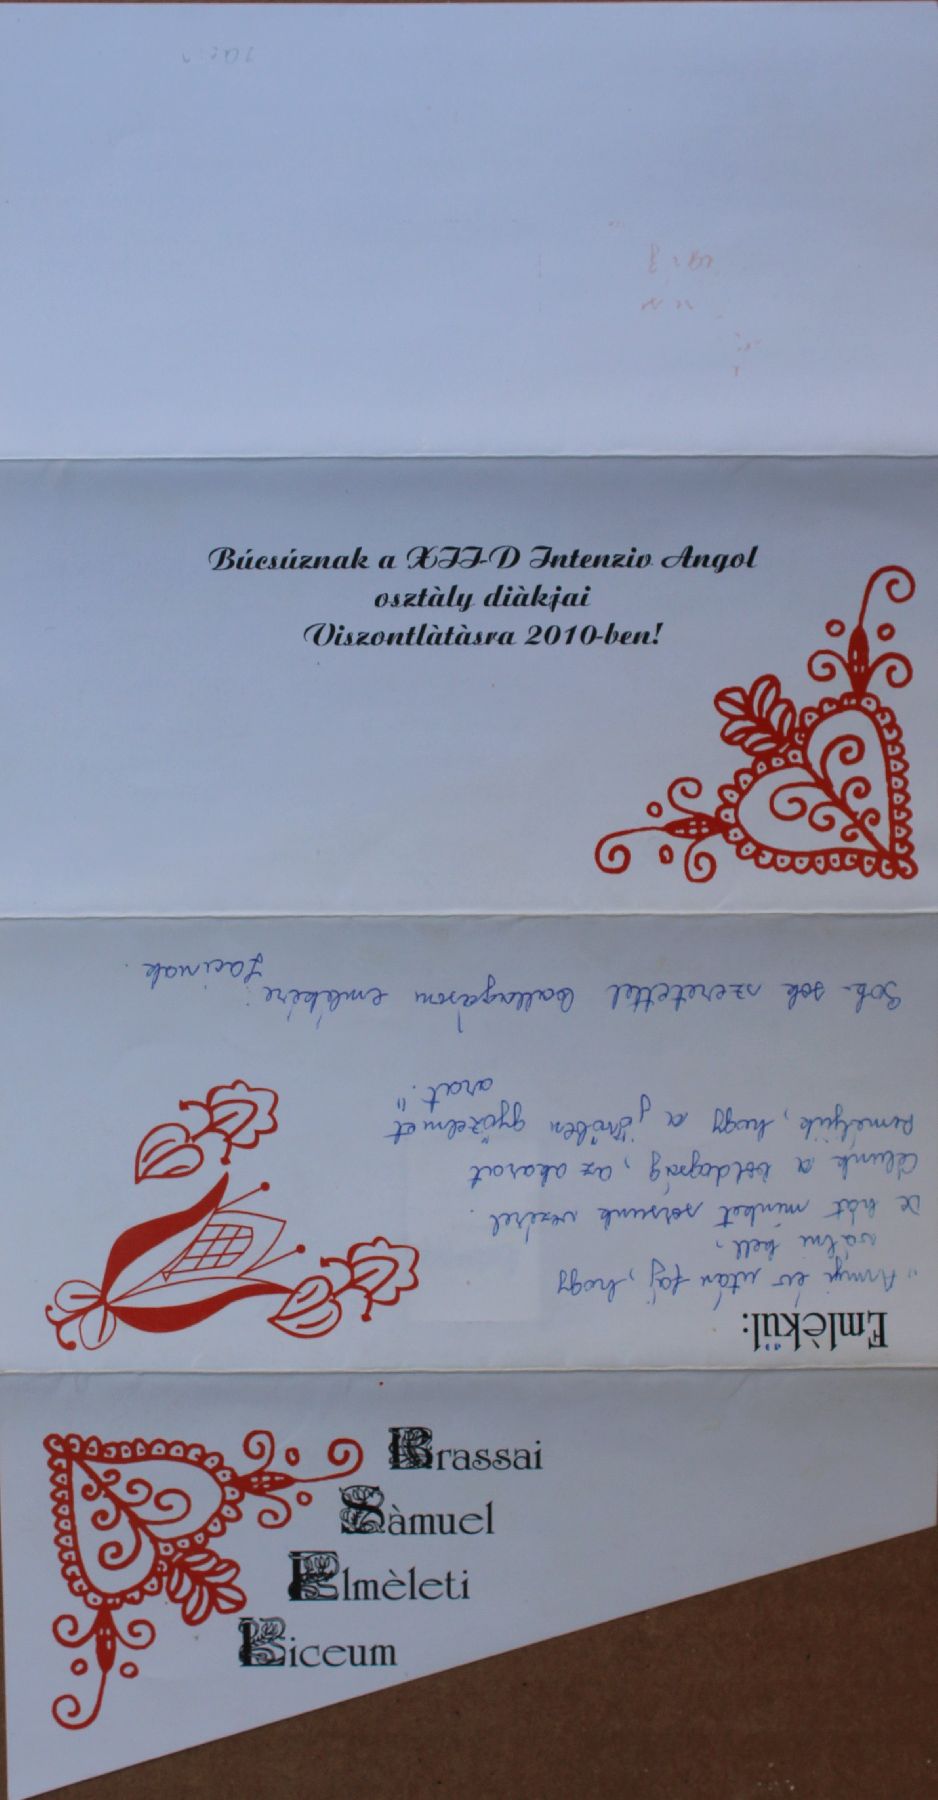 Búcsúznak a XII-D Intenziv Angol
osztàly diàkjai
Viszontlàtàsra 2010-ben!
Emlèkül:
"Annyi év után fáj, hogy
válni kell,
de hát minket sorsunk vezérel.
Célunk a boldogság, az akarat
Reméljük, hogy a jövőben győzelmet
arat."
Sok sok szeretettel ballagásom emlékére
Lacinak.
Brassai
Sàmuel
Elmèleti
Liceum